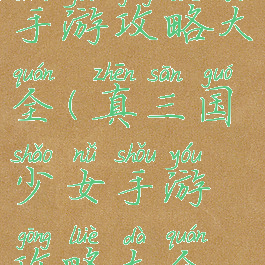 手游攻略大
quán zhēn sān guó
全(真三国
shǎo nǚ shǒu yóu
少女手游
gōng lüè dà quán
攻略大全